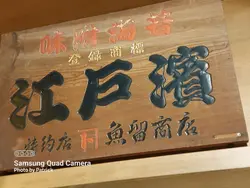 登録商標
江戸濱
特約店 魚留商店
Samsung Quad Camera
Photo by Patrick